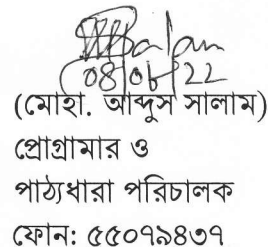 08/06/22
(মোহা. আব্দুস সালাম)
প্রোগ্রামার ও
পাঠ্যধারা পরিচালক
ফোন: ৫৫০৭৯৪৩৭